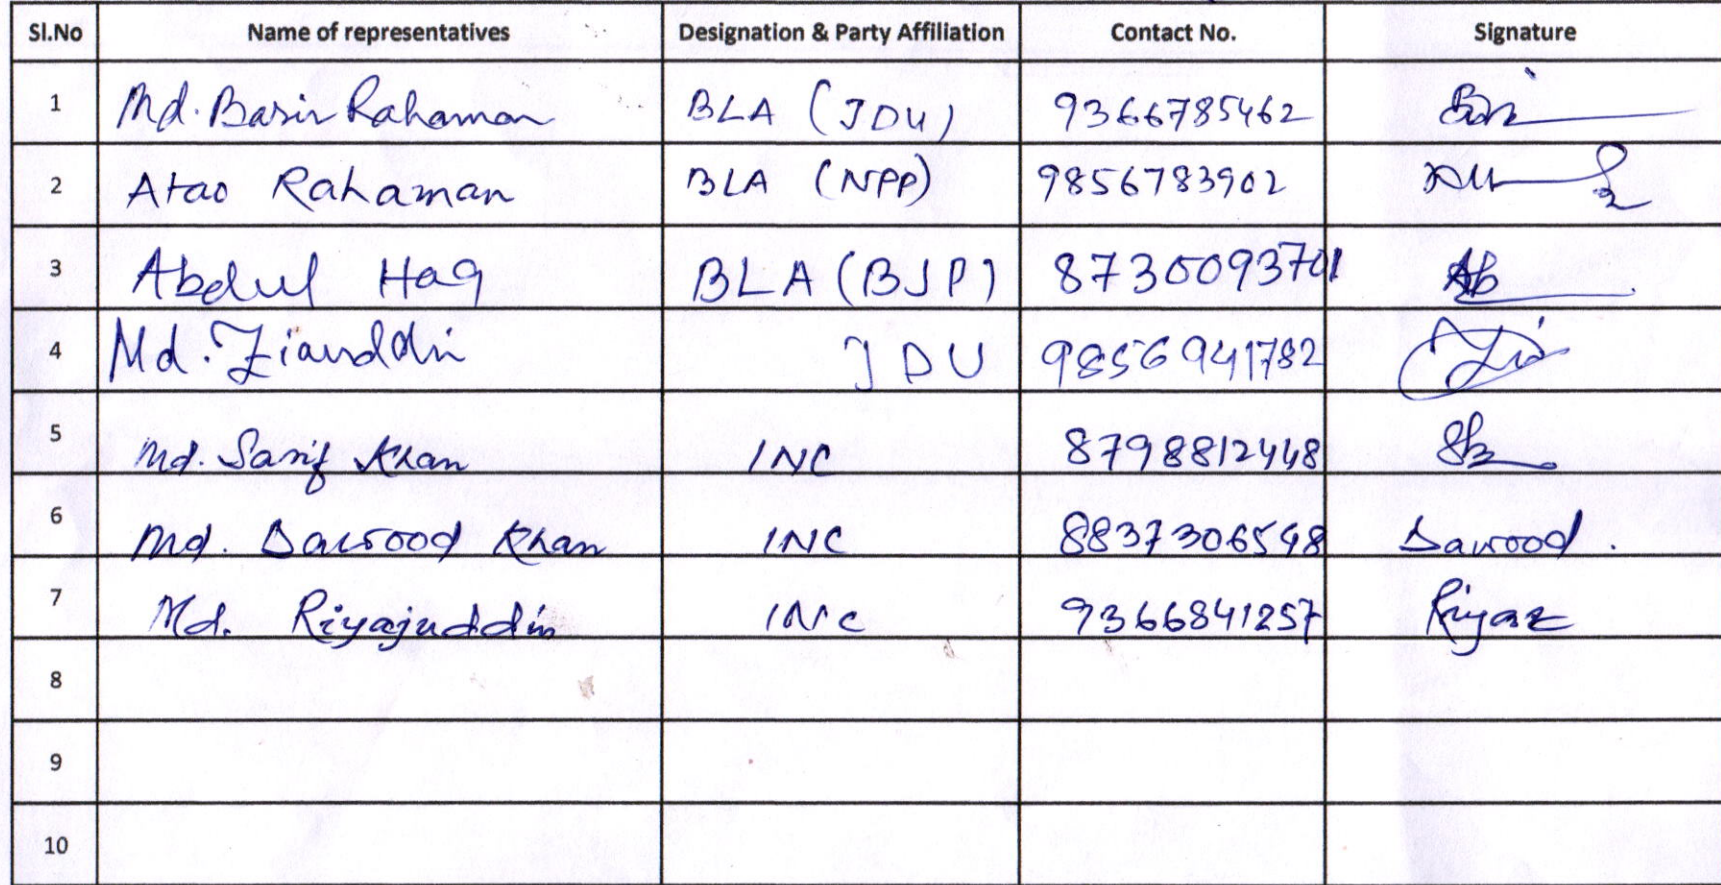 Sl.No Name of representatives Designation & Party Affiliation Contact No. Signature
1 Md. Basir Rahaman BLA (JDU) 9366785462
2 Atao Rahaman BLA (NPP) 9856783902
3 Abdul Haq BLA (BJP) 8730093701 Ab
4 Md. Ziauddin JDU 9856941782 Zia
5 Md. Sarif Khan INC 8798812448
6 Md. Dawood Khan INC 8837306598 Dawood.
7 Md. Riyajuddin INC 9366841257 Riyaz
8
9
10